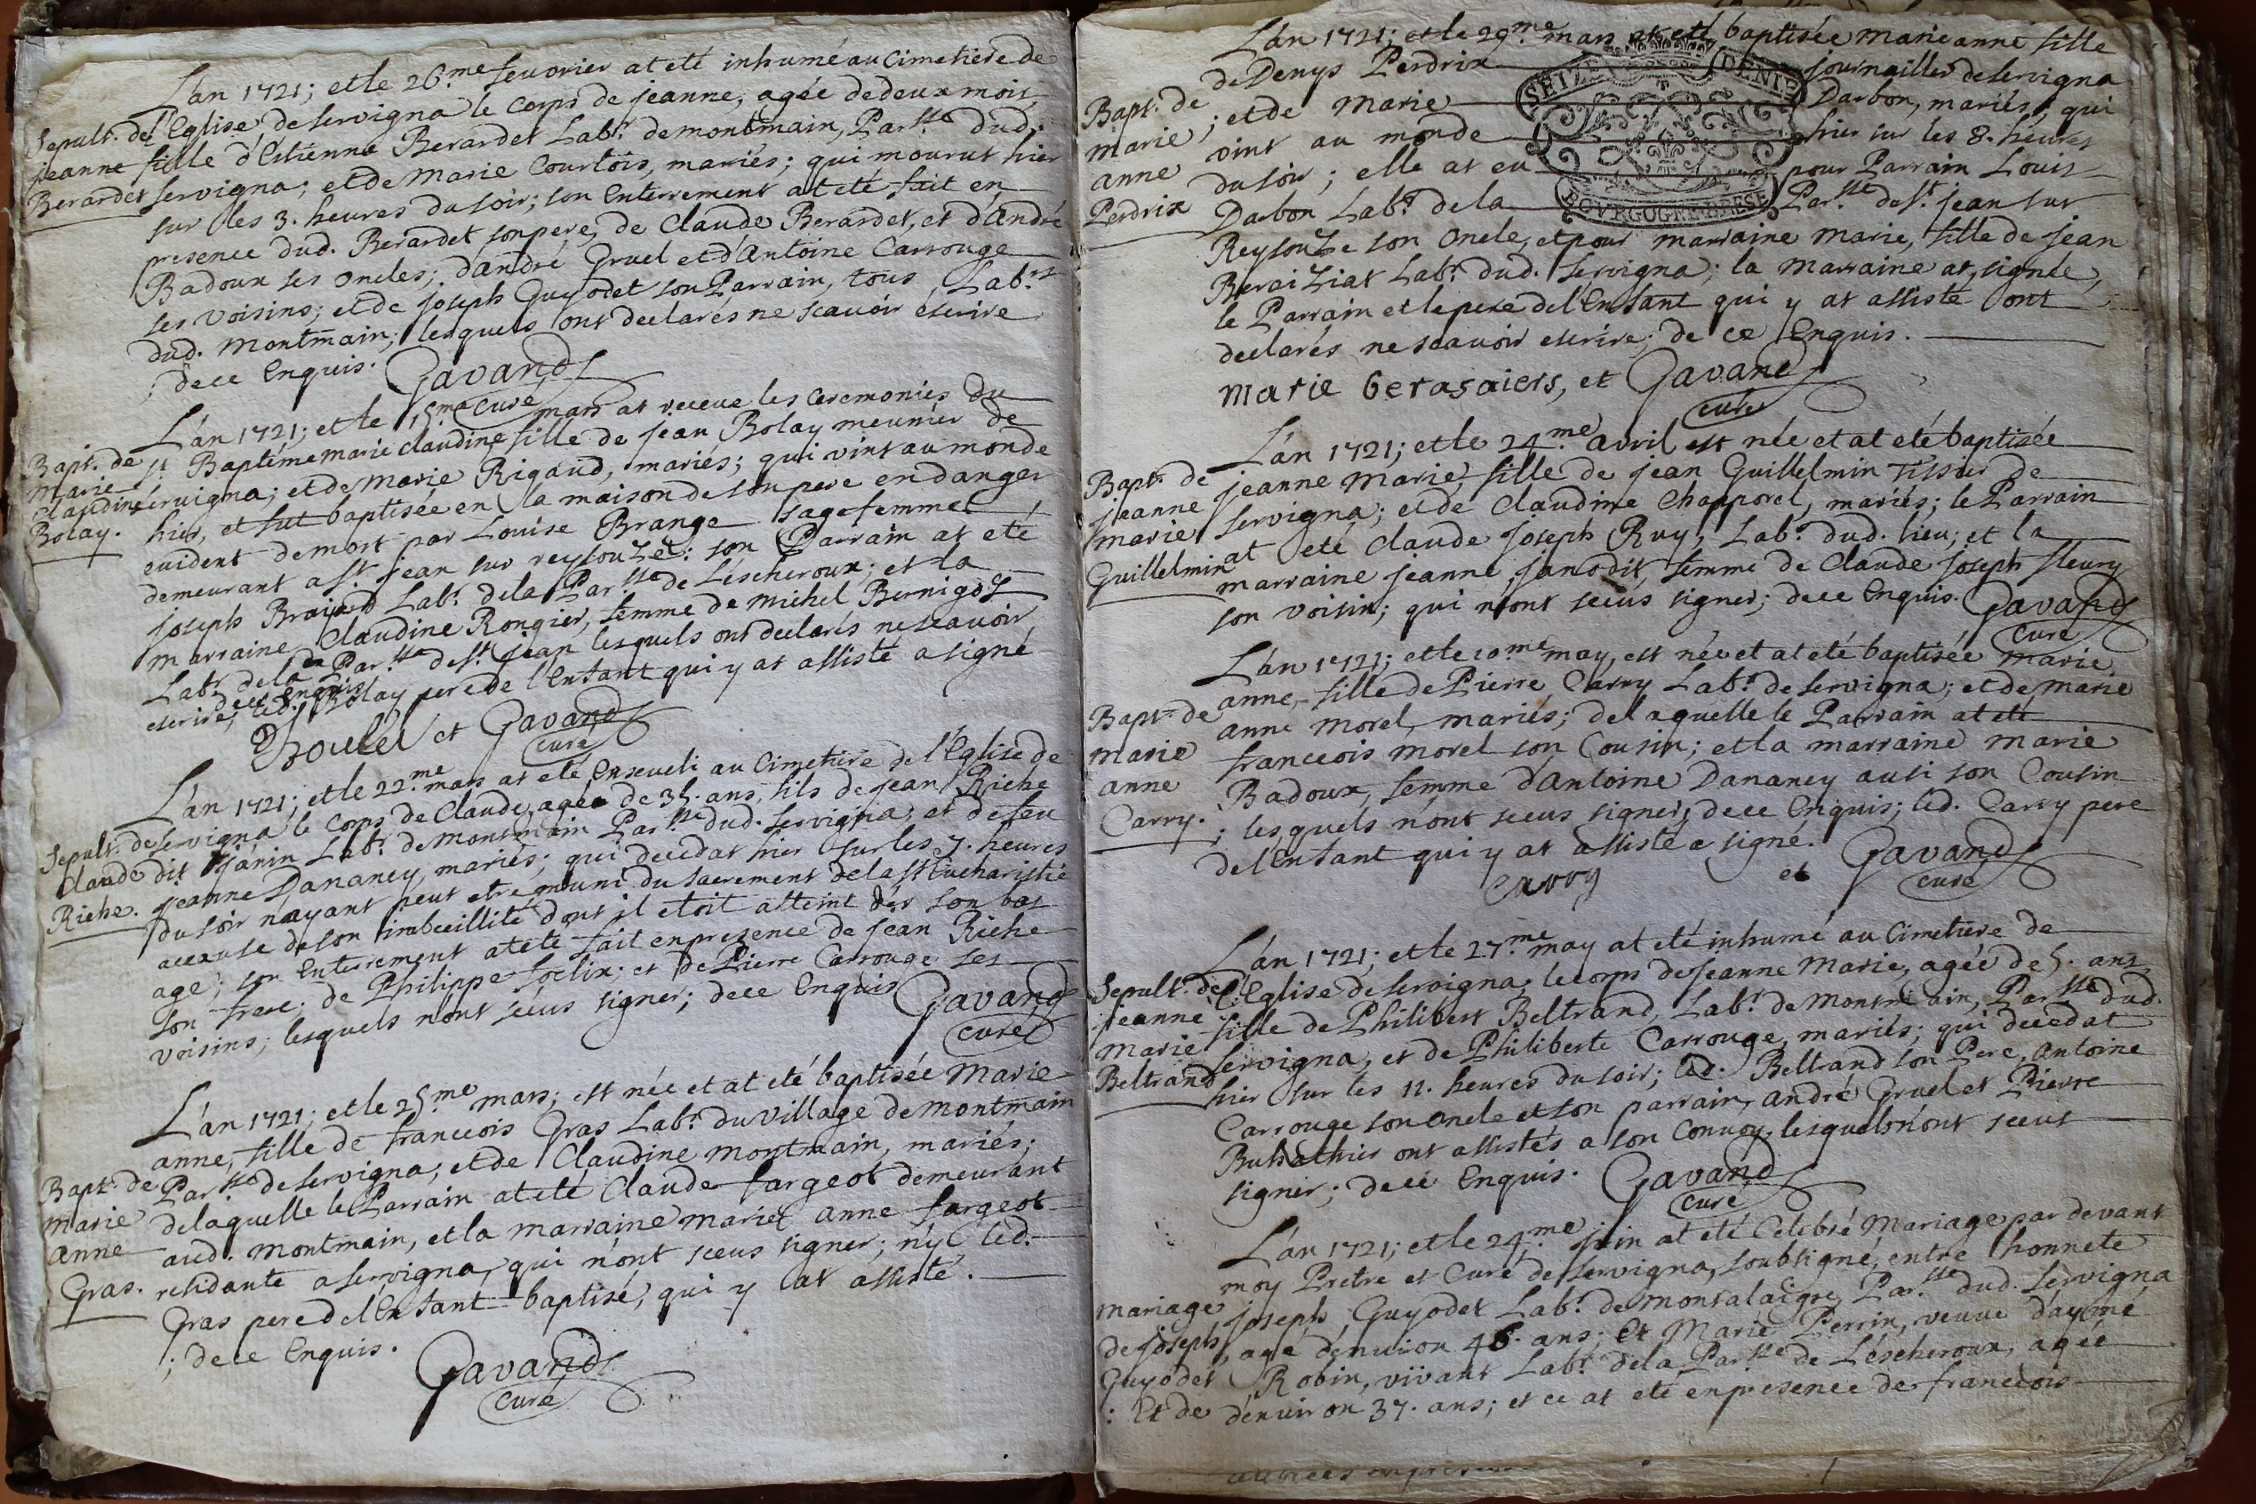 L'an 1721; et le 26.me feuvrier at eté inhumé au Cimetiere de
l'Eglise de servigna le corps de jeanne, agée de deux mois,
fille d'Estienne Berardet Labr. de montmain, Par.sse dud.
servigna; et de Marie Courtois, mariés; qui mourut hier
sur les 3. heures du soir; son Enterrement at eté fait en
presence dud. Berardet son pere, de Claude Berardet, et d'André
Badoux ses Oncles; d'andré Gruel et d'Antoine Carrouge
ses voisins; et de joseph Guyodet son Parrain, tous Labrs.
dud. Montmain; lesquels ont declarés ne scavoir escrire
; de ce Enquis. Gavand
curé
Sepult. de
jeanne
Berardet
L'an 1721; et le 15.me mars at receue les ceremonies du
st. Baptéme marie claudine fille de jean Bolay meunier de
servigna; et de Marie Rigaud, mariés; qui vint au monde
hier, et fut baptisée en la maison de son pere en danger
evident de mort par Louise Brange sagefemme
demeurant a st. jean sur reysouze: son Parrain at eté
joseph Brayard Labr. de la Par.sse de Léscheroux; et la
marraine Claudine Rongier, femme de Michel Bernigoz
Labr. de la Par.sse de st. jean lesquels ont declarés ne scavoir
de ce enquis
escrire, led. Bolay pere de l'Enfant qui y at assisté a signé
Boulei et Gavand
curé
Bapt. de
Marie
claudine
Bolay.
L'an 1721; et le 22.me mars at eté Enseveli au Cimetiere de l'Eglise de
servigna le corps de Claude, agée de 35. ans, fils de jean Riche
dit janin Labr. de Montmain Par.sse dud. servigna; et de feu
jeanne Dananey, mariés; qui decedat hier sur les 7. heures
du soir n'ayant peut etre muni du sacrement de la st. Eucharistie
acause de son imbecillité dont il etoit atteint dés son bas
age; son Enterrement at eté fait en presence de jean Riche
son frere; de Philippe soclix; et de Pierre Carrouge ses
voisins; lesquels n'ont sceus signer; de ce Enquis Gavand
curé
Sepult. de
Claude
Riche.
L'an 1721; et le 25.me mars; est née et at eté baptisée Marie
anne, fille de francois Gras Labr. du village de montmain
Par.sse de servigna; et de Claudine montmain, mariés;
de laquelle le Parrain at eté Claude fargeot demeurant
aud. montmain, et la marraine marie anne fargeot
residante a servigna, qui n'ont sceus signer; ny led.
Gras pere de l'Enfant baptisé, qui y at assisté.
; de ce Enquis. Gavand
curé
Bapt. de
marie
anne
Gras.
L'an 1721; et le 29.me mars at eté baptisée marie anne fille
de Denys Perdrix journailler de servigna
; et de Marie Darbon, mariés; qui
vint au monde hier sur les 8. heures
du soir; elle at eu pour Parrain Louis
Darbon Labr. de la Par.sse de st. jean sur
Reysouze son Oncle, et pour marraine Marie, fille de jean
Beraiziat Labr. dud. servigna; la Marraine at signée,
le Parrain et le pere de l'Enfant qui y at assisté ont
declarés ne scavoir escrire; de ce Enquis.
Marie Gerasaiers, et Gavand
curé
SEIZE DENIE
BOVRGOGNE BRESE
Bapt. de
marie
anne
Perdrix
L'an 1721; et le 24.me avril est née et at eté baptisée
jeanne Marie, fille de jean Guillelmin Tissur de
servigna; et de Claudine Chapporel, mariés; le Parrain
at eté Claude joseph Ruy, Labr. dud. lieu; et la
marraine jeanne janodit, femme de Claude joseph fleury
son voisin; qui n'ont sceus signer; de ce Enquis. Gavand
curé
Bapt. de
jeanne
marie
Guillelmin
L'an 1721; et le 10.me may, est née et at eté baptisée marie
anne, fille de Pierre Carry Labr. de servigna; et de marie
anne Morel, mariés; de laquelle le Parrain at eté
francois morel son Cousin; et la marraine marie
Badoux, femme d'Antoine Dananey ausi son Cousin
; lesquels n'ont sceus signer, de ce Enquis; led. Carry pere
de l'Enfant qui y at assisté a signé.
Carry et Gavand
curé
Bapt. de
marie
anne
Carry.
L'an 1721; et le 27.me may at eté inhumé au Cimetiere de
l'Eglise de servigna, le corps de jeanne Marie, agée de 5. ans,
fille de Philibert Beltrand, Labr. de Montmain, Par.sse dud.
servigna, et de Philiberte Carrouge, mariés; qui decedat
hier sur les 11. heures du soir; led. Beltrand son Pere, Antoine
Carrouge son oncle et son parrain, andré Gruel et Pierre
Buhathier ont assistés a son Convoy, lesquels n'ont sceus
signer; de ce Enquis. Gavand
curé
Sepult. de
jeanne
marie
Beltrand
L'an 1721; et le 24.me juin at eté Celebré Mariage par devant
moy Pretre et Curé de servigna, soubsigné, entre honnete
joseph Guyodet Labr. de Montalaigre, Par.sse dud. servigna
, agé d'environ 46. ans; Et Marie Perrin, veuve d'aymé
Robin, vivant Labr. de la Par.sse de Léscheroux, agée
d'environ 37. ans; et ce at eté en presence de francois
mariage
de joseph
Guyodet
: Et de